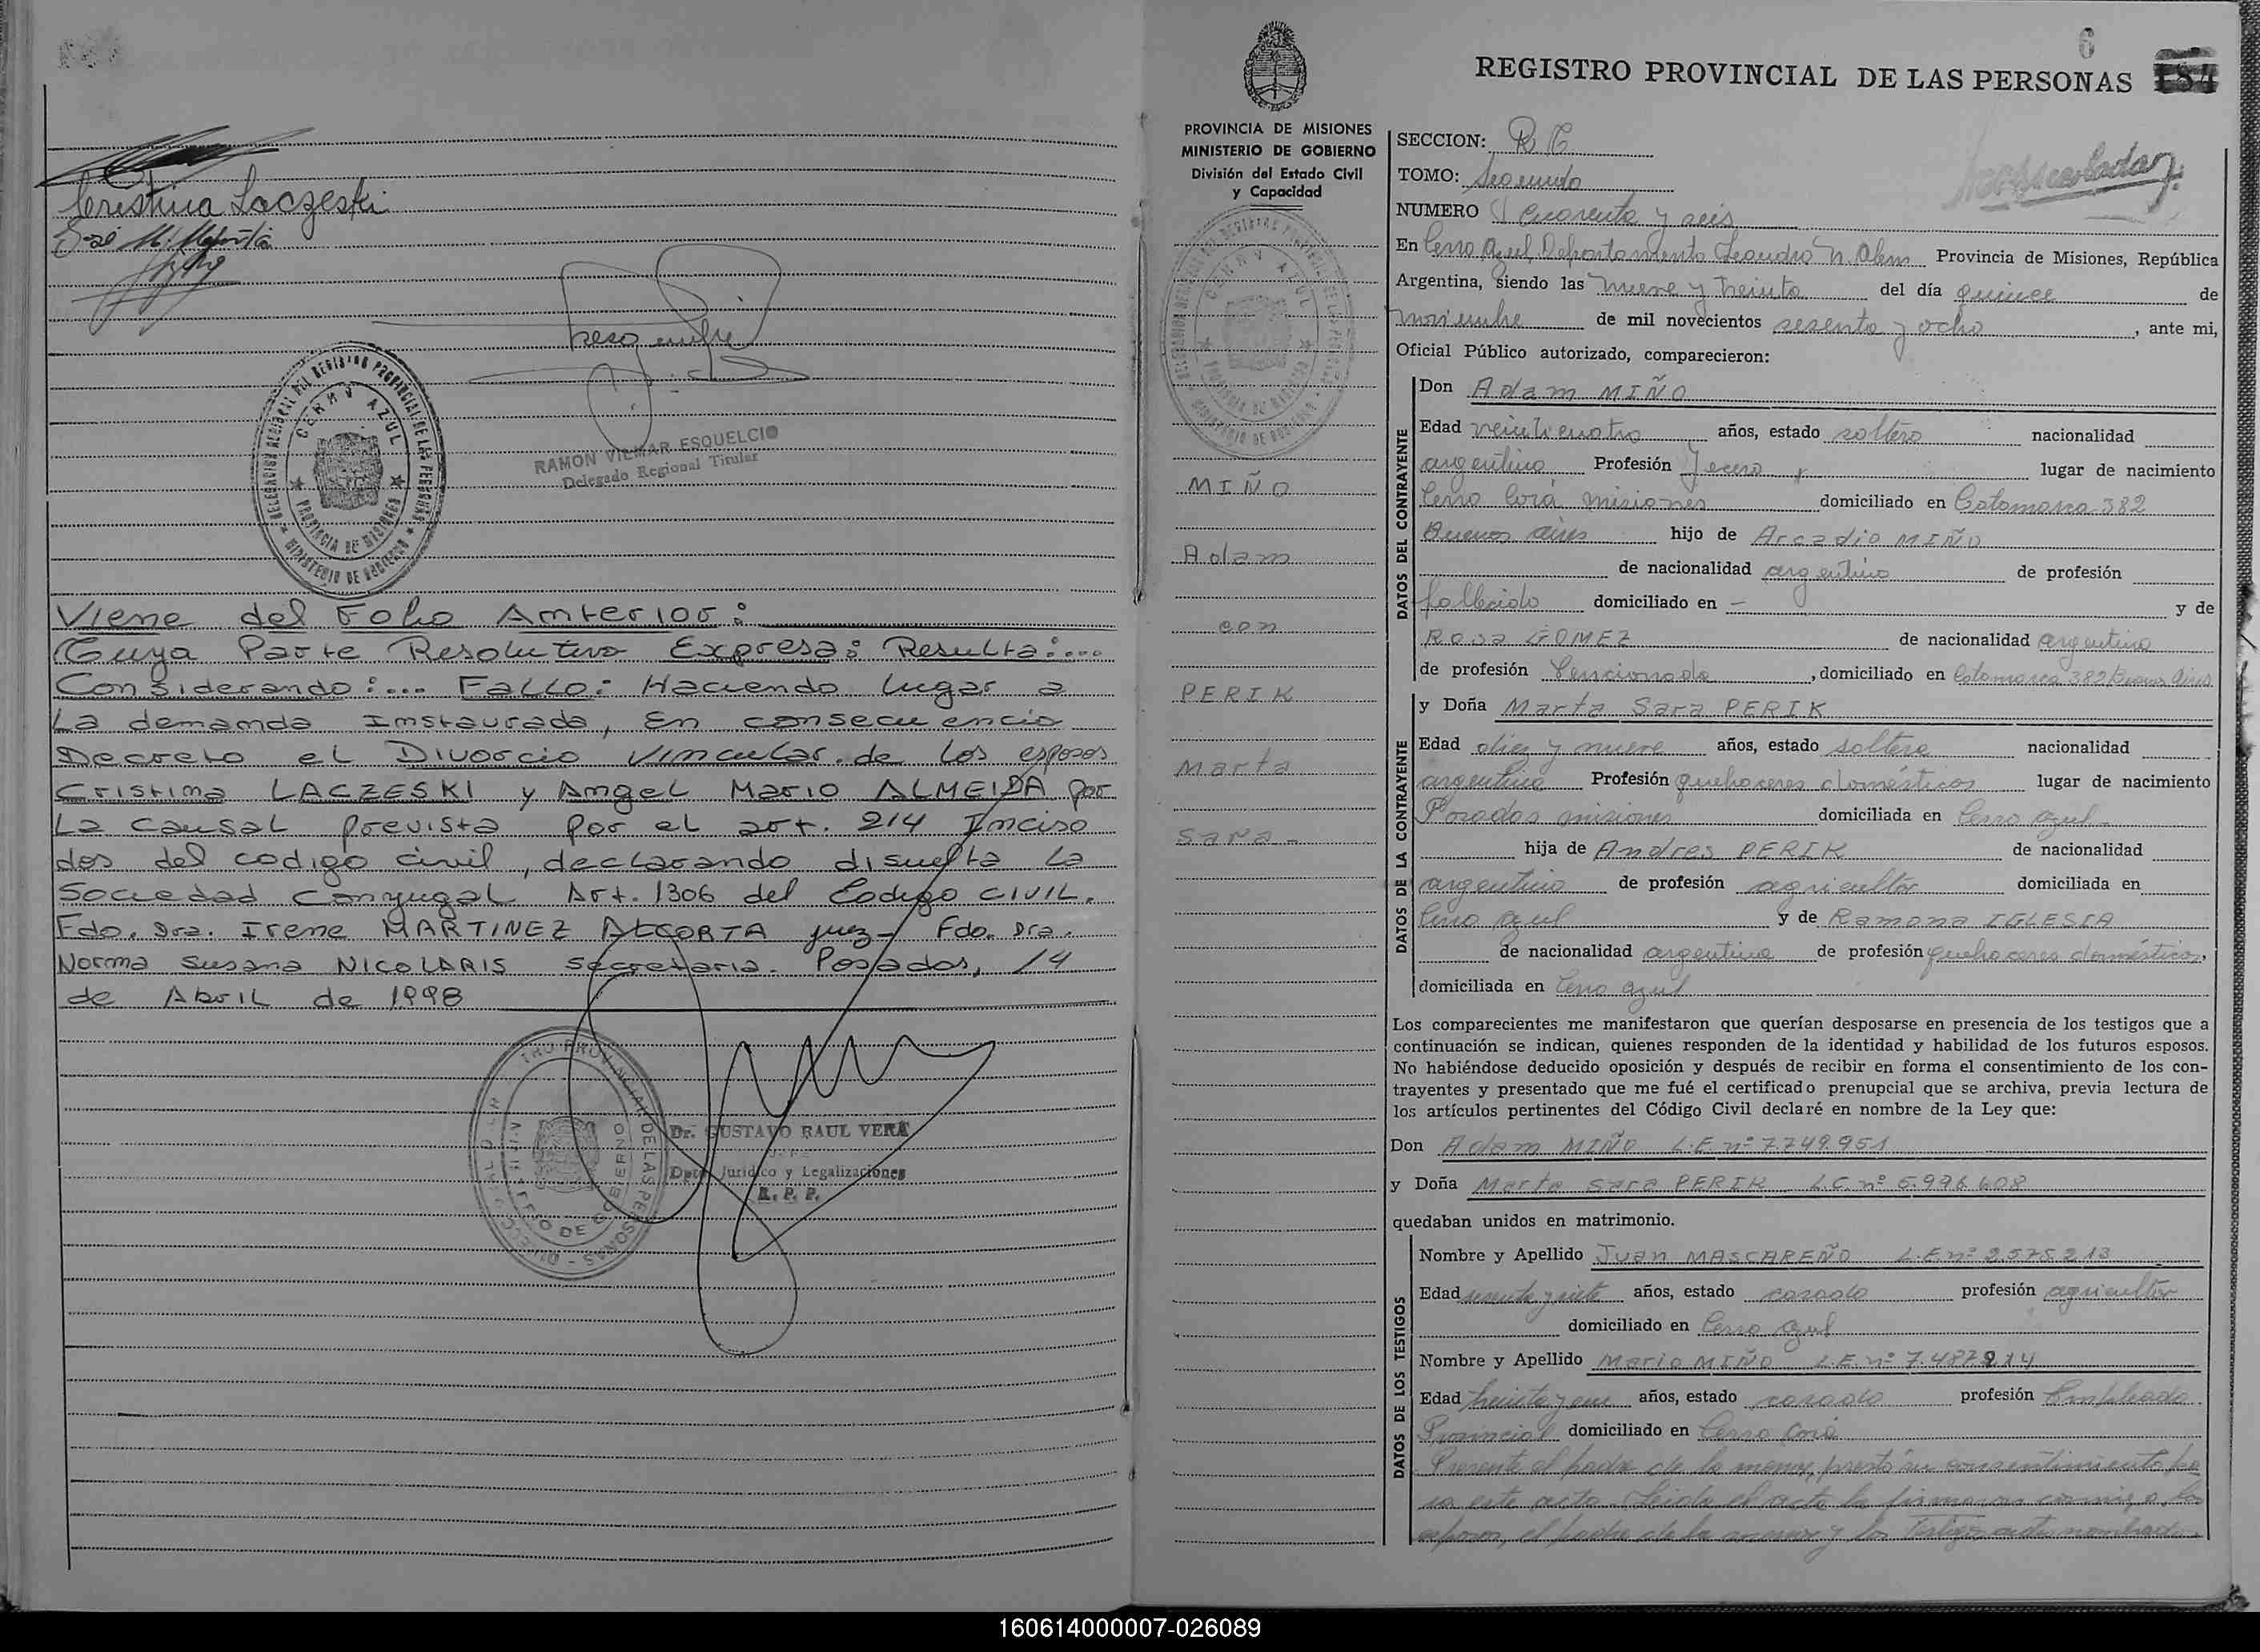 Cristina Laczeski
RAMON VILMAR ESQUELCIO
Delegado Regional Titular
DELEGACION REGIONAL DEL REGISTRO PROVINCIAL DE LAS PERSONAS
CERRO AZUL
PROVINCIA DE MISIONES
MINISTERIO DE GOBIERNO
Viene del Folio Anterior:
Cuya Parte Resolutiva Expresa: Resulta:...
Considerando:... Fallo: Haciendo lugar a
La demanda Instaurada, En consecuencia
Decreto el Divorcio Vincular de los esposos
Cristina LACZESKI y Angel Mario ALMEIDA por
La causal prevista por el art. 214 Inciso
dos del codigo civil, declarando disuelta la
Sociedad Conyugal Art. 1306 del Codigo CIVIL.
Fdo. Dra. Irene MARTINEZ ALCORTA juez - Fdo. Dra.
Norma Susana NICOLARIS secretaria. Posadas, 14
de Abril de 1998
Dr. GUSTAVO RAUL VERA
JEFE
Dpto. Jurídico y Legalizaciones
R. P. P.
6
REGISTRO PROVINCIAL DE LAS PERSONAS 184
PROVINCIA DE MISIONES
MINISTERIO DE GOBIERNO
División del Estado Civil
y Capacidad
MIÑO
Adam
con
PERIK
Marta
Sara -
SECCION:
TOMO: Segundo
NUMERO Cuarenta y seis
En Cerro Azul, Departamento Leandro N. Alem Provincia de Misiones, República
Argentina, siendo las nueve y treinta del día quince de
noviembre de mil novecientos sesenta y ocho, ante mi,
Oficial Público autorizado, comparecieron:
DATOS DEL CONTRAYENTE
Don Adam MIÑO
Edad veinticuatro años, estado soltero nacionalidad
argentino Profesión lugar de nacimiento
Cerro Corá misiones domiciliado en Catamarca 382
Buenos Aires hijo de Arcadio MIÑO
de nacionalidad argentino de profesión
fallecido domiciliado en - y de
Rosa GOMEZ de nacionalidad argentina
de profesión Pencionada, domiciliado en Catamarca 382 Buenos Aires
DATOS DE LA CONTRAYENTE
y Doña Marta Sara PERIK
Edad diez y nueve años, estado soltera nacionalidad
argentina Profesión quehaceres domésticos lugar de nacimiento
Posadas misiones domiciliada en Cerro Azul
hija de Andres PERIK de nacionalidad
argentino de profesión agricultor domiciliada en
Cerro Azul y de Ramona IGLESIA
de nacionalidad argentina de profesión quehaceres domésticos,
domiciliada en Cerro Azul
Los comparecientes me manifestaron que querían desposarse en presencia de los testigos que a
continuación se indican, quienes responden de la identidad y habilidad de los futuros esposos.
No habiéndose deducido oposición y después de recibir en forma el consentimiento de los con-
trayentes y presentado que me fué el certificado prenupcial que se archiva, previa lectura de
los artículos pertinentes del Código Civil declaré en nombre de la Ley que:
Don Adam MIÑO L.E. nº 7.749.951
y Doña Marta Sara PERIK L.C. nº 5.996.608
quedaban unidos en matrimonio.
DATOS DE LOS TESTIGOS
Nombre y Apellido Juan MASCAREÑO L.E. nº 2.575.213
Edad sesenta y siete años, estado casado profesión agricultor
domiciliado en Cerro Azul
Nombre y Apellido Mario MIÑO L.E. nº 7.487.914
Edad treinta y años, estado casado profesión Empleado
Provincial domiciliado en Cerro Corá
Presente el padre de la menor, prestó su consentimiento pa
ra este acto. Leída el acta la firmaron conmigo, los
esposos, el padre de la menor y los testigos ante nombrados.
160614000007-026089